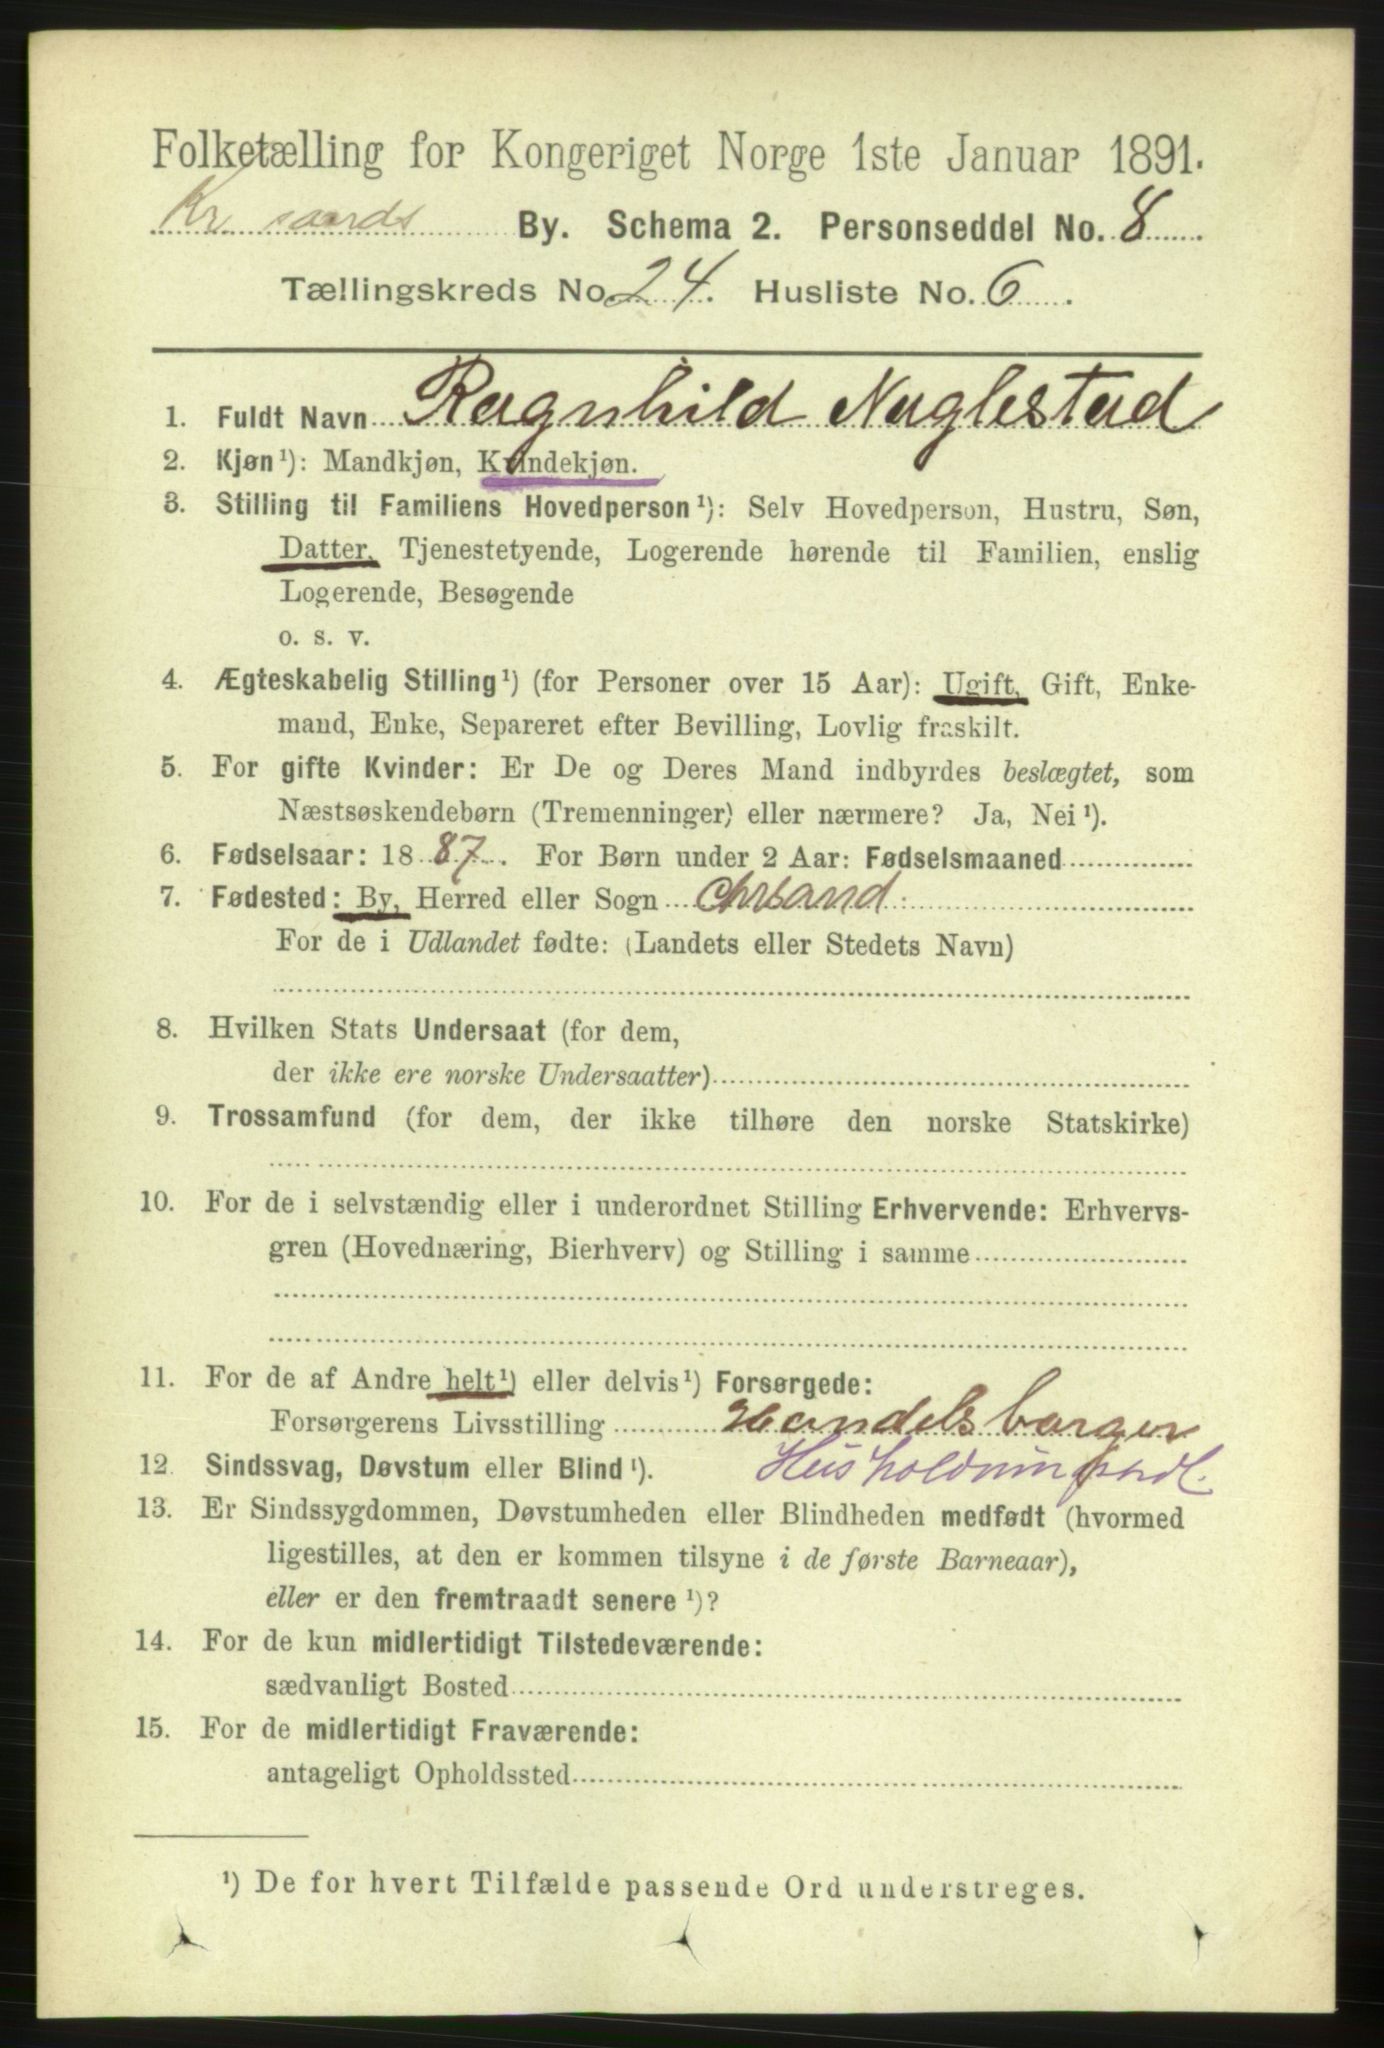 Folketælling for Kongeriget Norge 1ste Januar 1891.
Kr sands By. Schema 2. Personseddel No. 8
Tællingskreds No. 24. Husliste No. 6.
1. Fuldt Navn Ragnhild Naglestad
2. Kjøn ¹): Mandkjøn, Kvindekjøn.
3. Stilling til Familiens Hovedperson ¹): Selv Hovedperson, Hustru, Søn,
Datter, Tjenestetyende, Logerende hørende til Familien, enslig
Logerende, Besøgende
o. s. v.
4. Ægteskabelig Stilling ¹) (for Personer over 15 Aar): Ugift, Gift, Enke-
mand, Enke, Separeret efter Bevilling, Lovlig fraskilt.
5. For gifte Kvinder: Er De og Deres Mand indbyrdes beslægtet, som
Næstsøskendebørn (Tremenninger) eller nærmere? Ja, Nei ¹).
6. Fødselsaar: 1887. For Børn under 2 Aar: Fødselsmaaned
7. Fødested: By, Herred eller Sogn Chrsand.
For de i Udlandet fødte: (Landets eller Stedets Navn)
8. Hvilken Stats Undersaat (for dem,
der ikke ere norske Undersaatter)
9. Trossamfund (for dem, der ikke tilhøre den norske Statskirke)
10. For de i selvstændig eller i underordnet Stilling Erhvervende: Erhvervs-
gren (Hovednæring, Bierhverv) og Stilling i samme
11. For de af Andre helt ¹) eller delvis ¹) Forsørgede:
Forsørgerens Livsstilling Handelsborger
12. Sindssvag, Døvstum eller Blind ¹).
13. Er Sindssygdommen, Døvstumheden eller Blindheden medfødt (hvormed
ligestilles, at den er kommen tilsyne i de første Barneaar),
eller er den fremtraadt senere ¹)?
14. For de kun midlertidigt Tilstedeværende:
sædvanligt Bosted
15. For de midlertidigt Fraværende:
antageligt Opholdssted
¹) De for hvert Tilfælde passende Ord understreges.